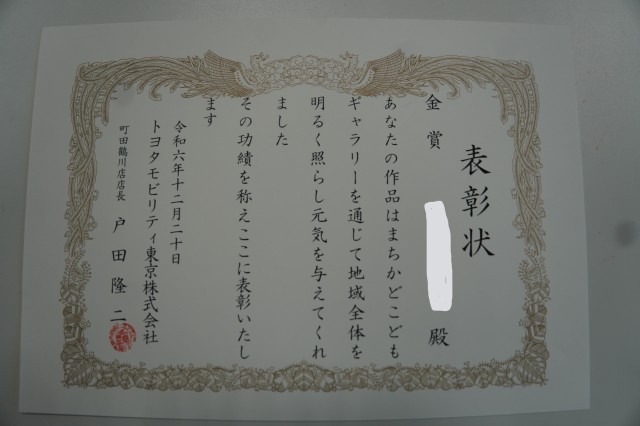 表彰状
金賞 殿
あなたの作品はまちかどこども
ギャラリーを通じて地域全体を
明るく照らし元気を与えてくれ
ました
その功績を称えここに表彰いたし
ます
令和六年十二月二十日
トヨタモビリティ東京株式会社
町田鶴川店店長 戸田隆二